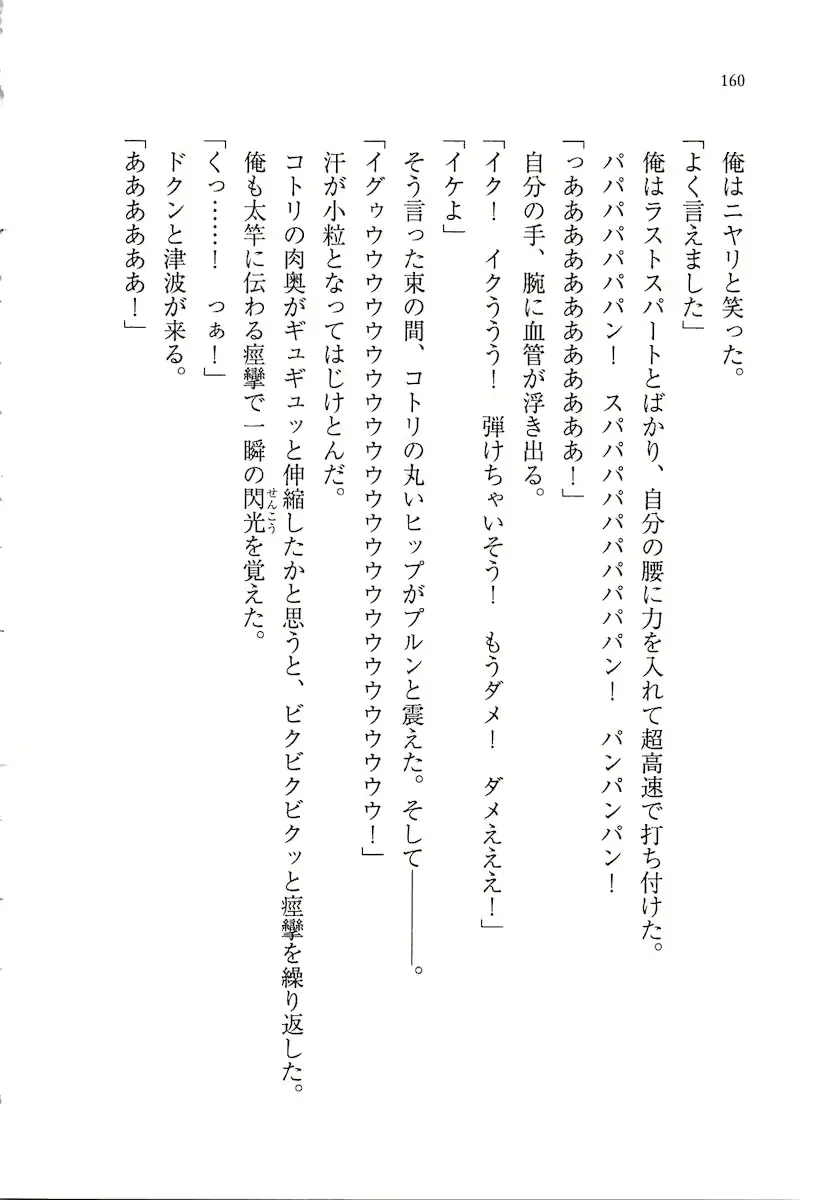 160
俺はニヤリと笑った。
「よく言えました」
俺はラストスパートとばかり、自分の腰に力を入れて超高速で打ち付けた。
パパパパパパパン！　スパパパパパパパパパパン！　パンパンパン！
「っあああああああああああああ！」
自分の手、腕に血管が浮き出る。
「イク！　イクううう！　弾けちゃいそう！　もうダメ！　ダメえええ！」
「イケよ」
そう言った束の間、コトリの丸いヒップがプルンと震えた。そして―――。
「イグゥウウウウウウウウウウウウウウウウウウ！」
汗が小粒となってはじけとんだ。
コトリの肉奥がギュギュッと伸縮したかと思うと、ビクビクビクッと痙攣を繰り返した。
俺も太竿に伝わる痙攣で一瞬の閃光を覚えた。
せんこう
「くっ……！　っぁ！」
ドクンと津波が来る。
「ああああああ！」